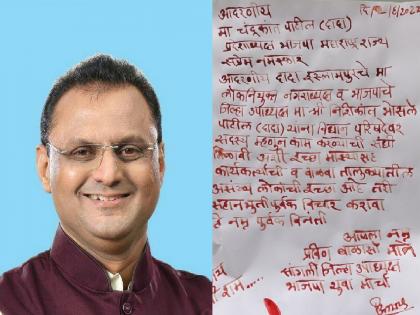 आदरणीय
मा चंद्रकांत पाटील (दादा)
प्रदेशाध्यक्ष भाजपा महाराष्ट्र राज्य
सप्रेम नमस्कार
आदरणीय दादा इस्लामपुरचे मा
लोकनियुक्त नगराध्यक्ष व भाजपाचे
जिल्हा उपाध्यक्ष मा श्री निशिकांत भोसले
पाटील (दादा) यांना विधान परिषदेवर
सदस्य म्हणून काम करण्याची संधी
मिळावी अशी इच्छा माझ्यासह
कार्यकर्त्यांची व वाळवा तालुक्यातील
असंख्य लोकांची इच्छा आहे तरी
सहानभुतीपुर्वक विचार करावा
हे नम्र पुर्वक विनंती
आपला नम्र
प्रविण बाळासो माने
सांगली जिल्हा उपाध्यक्ष
भाजपा युवा मोर्चा